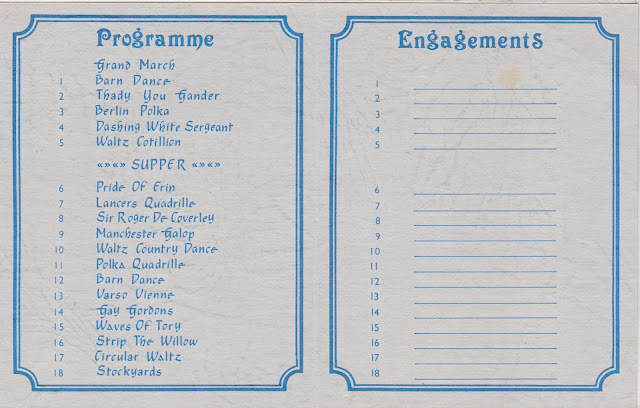 Programme
Grand March
1 Barn Dance
2 Thady You Gander
3 Berlin Polka
4 Dashing White Sergeant
5 Waltz Cotillion
«»«» SUPPER «»«»
6 Pride Of Erin
7 Lancers Quadrille
8 Sir Roger De Coverley
9 Manchester Galop
10 Waltz Country Dance
11 Polka Quadrille
12 Barn Dance
13 Varso Vienne
14 Gay Gordons
15 Waves Of Tory
16 Strip The Willow
17 Circular Waltz
18 Stockyards
Engagements
1
2
3
4
5
6
7
8
9
10
11
12
13
14
15
16
17
18